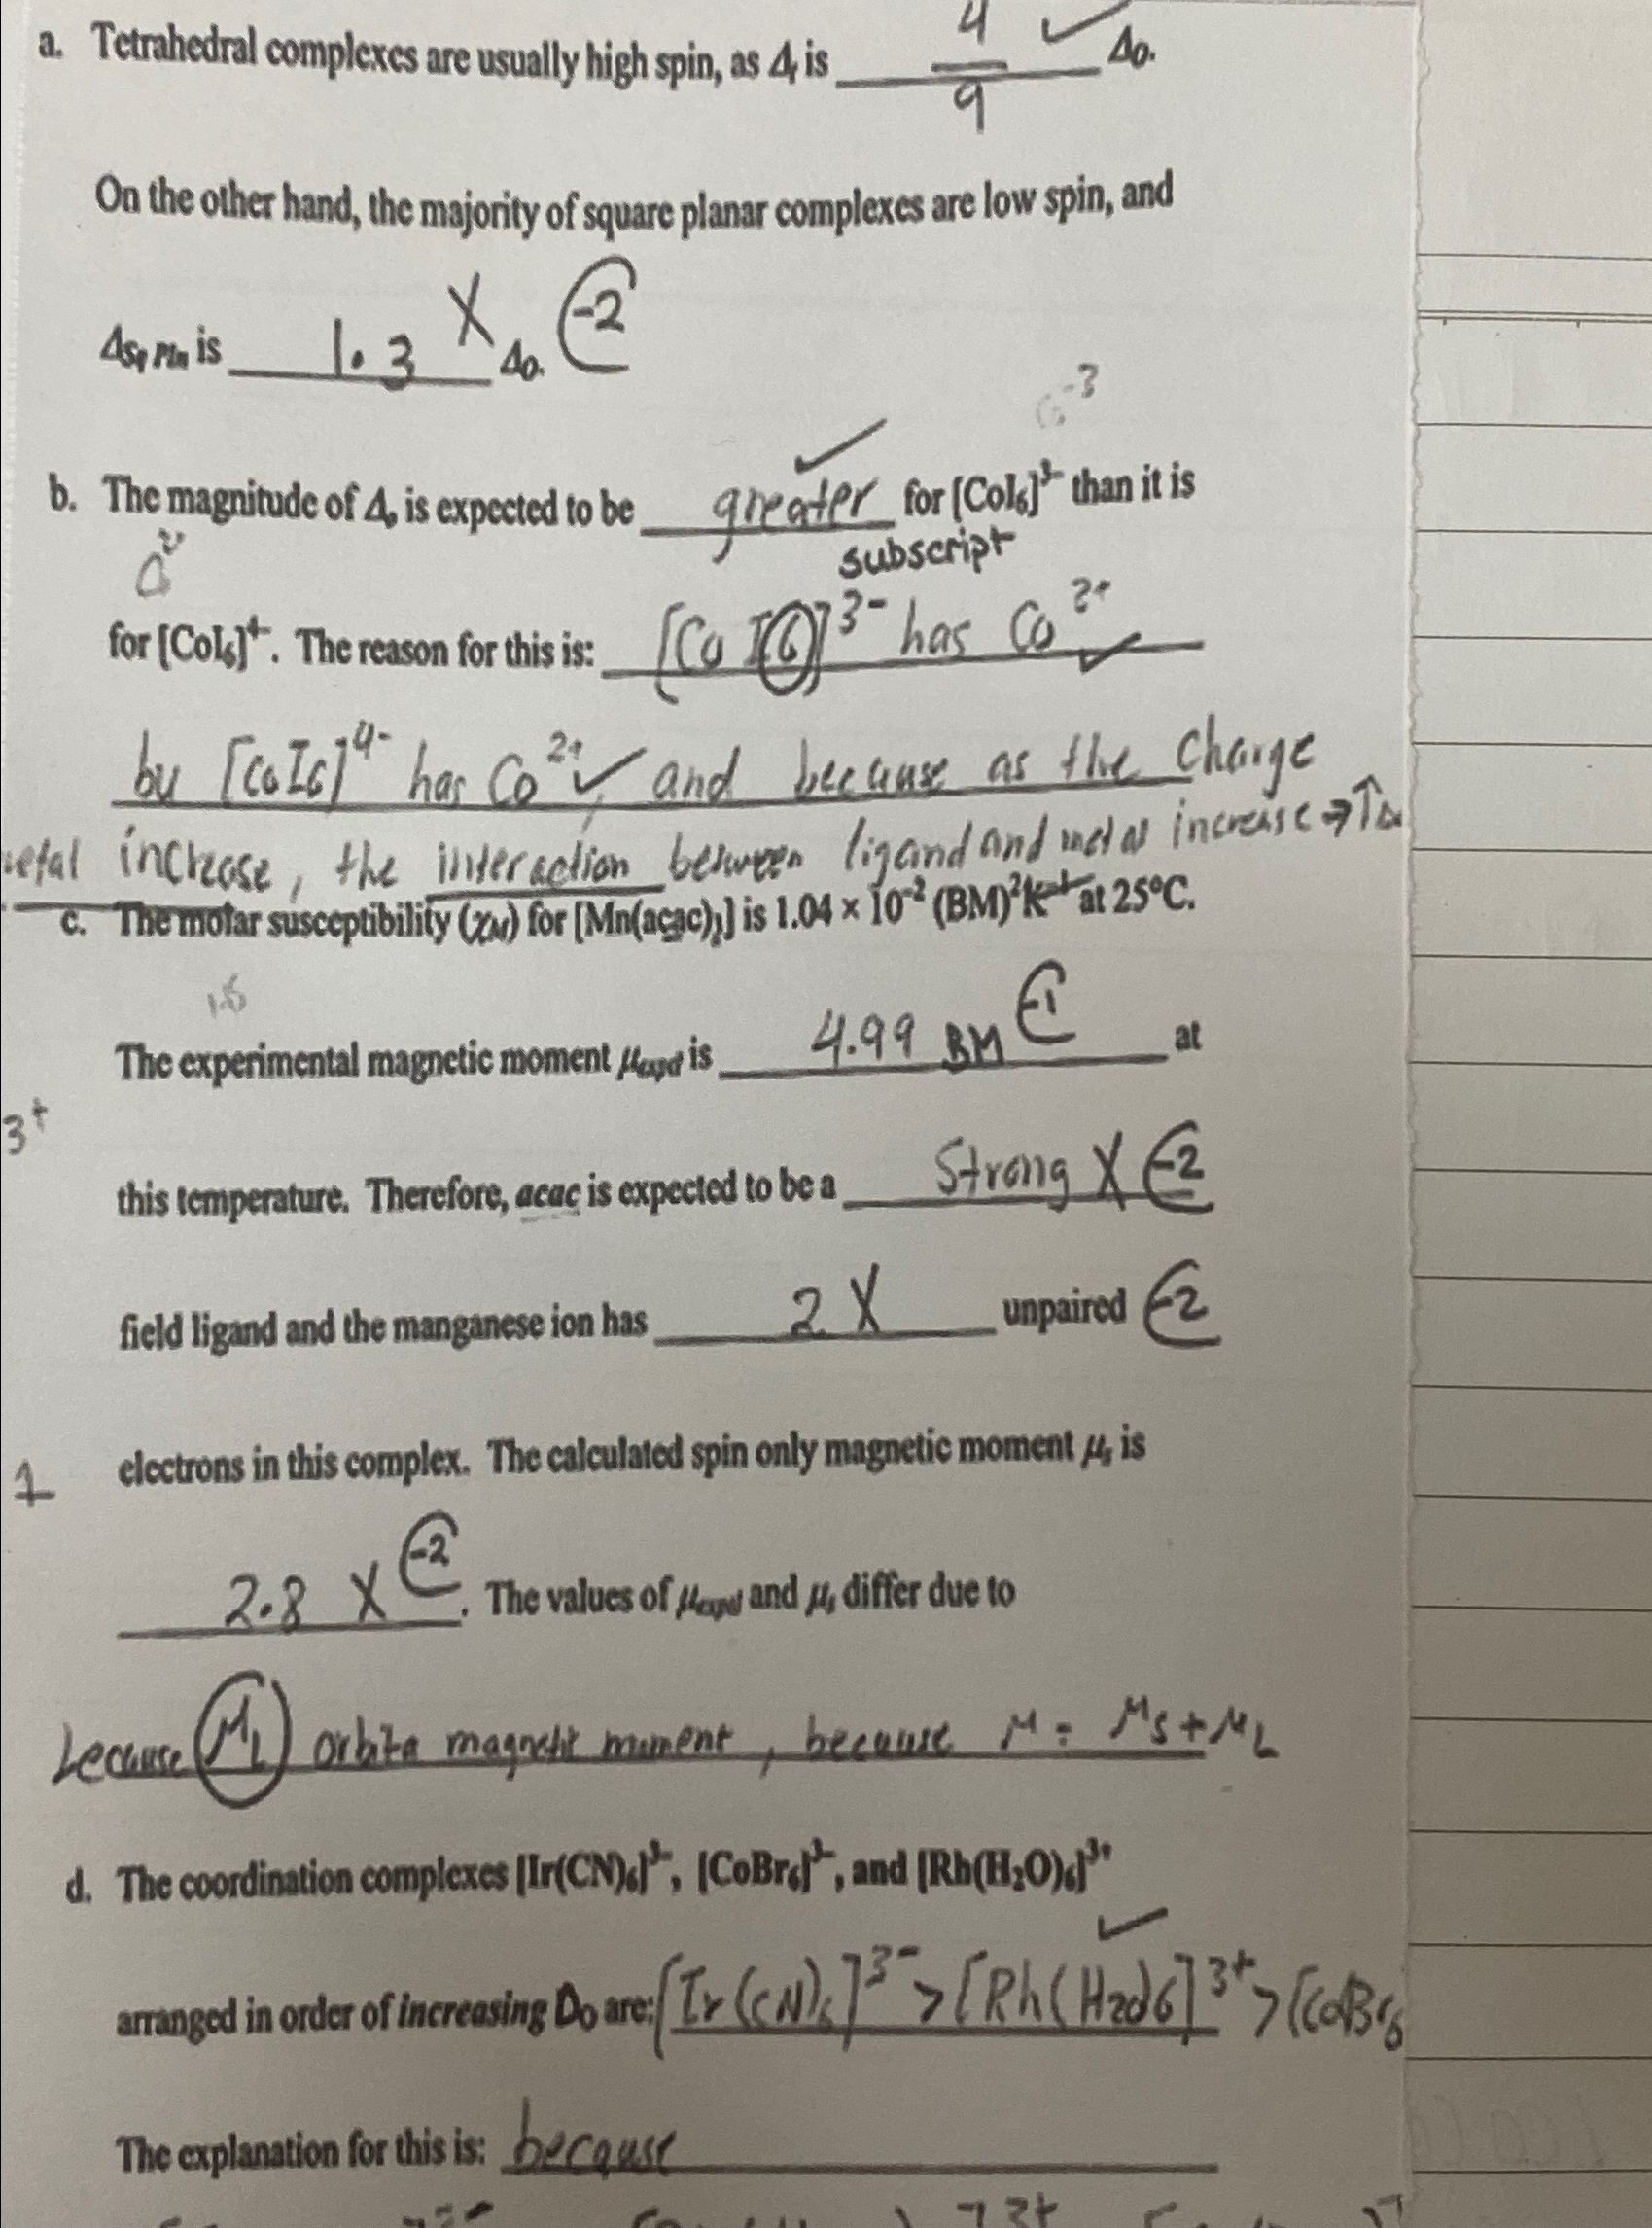 a. Tetrahedral complexes are usually high spin, as Δt is 4/9 ✓ Δo.
On the other hand, the majority of square planar complexes are low spin, and
ΔSq Pln is 1.3 X Δo. -2
-3
b. The magnitude of Δo is expected to be greater ✓ for [CoI6]3- than it is
subscript
for [CoI6]4-. The reason for this is: [CoI6]3- has Co3+ ✓
by [CoI6]4- has Co2+ ✓, and because as the charge
metal increase, the interaction between ligand and metal increase → ↑Δ
c. The molar susceptibility (χM) for [Mn(acac)3] is 1.04 × 10-2 (BM)2K-1 at 25°C.
The experimental magnetic moment μexpd is 4.99 BM -1 at
3+
this temperature. Therefore, acac is expected to be a Strong X -2
field ligand and the manganese ion has 2 X unpaired -2
electrons in this complex. The calculated spin only magnetic moment μs is
2.8 X -2. The values of μexpd and μs differ due to
because ML orbita magnetic moment, because M = MS + ML
d. The coordination complexes [Ir(CN)6]3-, [CoBr6]3-, and [Rh(H2O)6]3+
✓
arranged in order of increasing DO are: [Ir(CN)6]3- > [Rh(H2O)6]3+ > [CoBr6
The explanation for this is: because